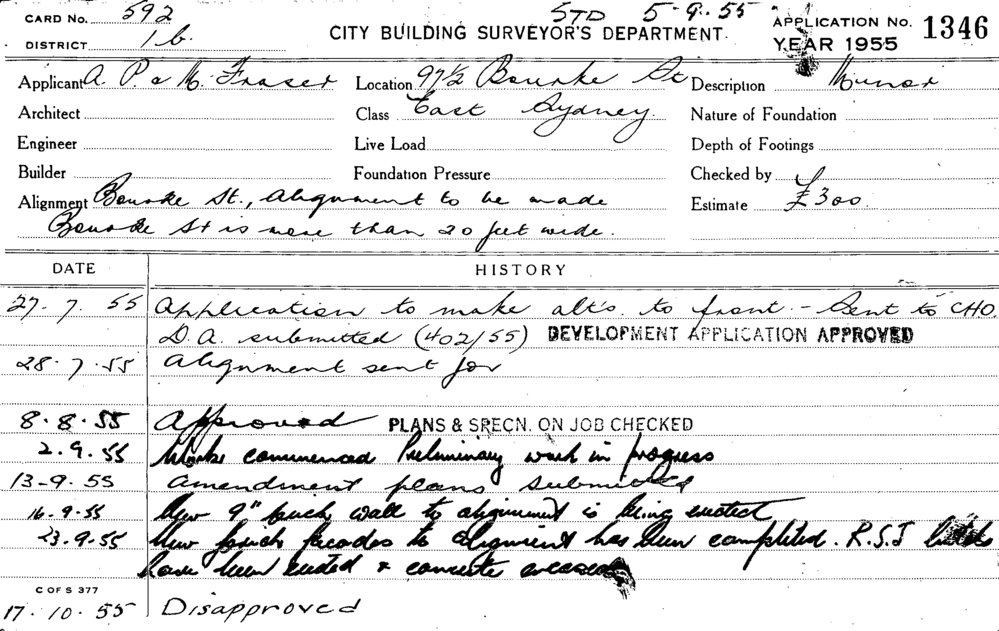 CARD No. 592
STD 5-9-55
APPLICATION No. 1346
DISTRICT 1b.
CITY BUILDING SURVEYOR'S DEPARTMENT.
YEAR 1955
Applicant A. P. & M. Fraser Location 97½ Bourke St Description Minor
Architect Class East Sydney. Nature of Foundation
Engineer Live Load Depth of Footings
Builder Foundation Pressure Checked by
Alignment Bourke St., alignment to be made Estimate £300
Bourke St is more than 20 feet wide.
DATE HISTORY
27. 7. 55 Application to make alt's. to front. - Sent to CHO.
D.A. submitted (402/55) DEVELOPMENT APPLICATION APPROVED
28. 7. 55 Alignment sent for
8. 8. 55 Approved PLANS & SPECN. ON JOB CHECKED
2. 9. 55 Work commenced Preliminary work in progress
13-9-55 Amendment plans submitted
16-9-55 New 9" brick wall to alignment is being erected
23.9.55 New brick facades to alignment has been completed. R.S.J
have been erected & concrete
C OF S 377
17. 10. 55 Disapproved